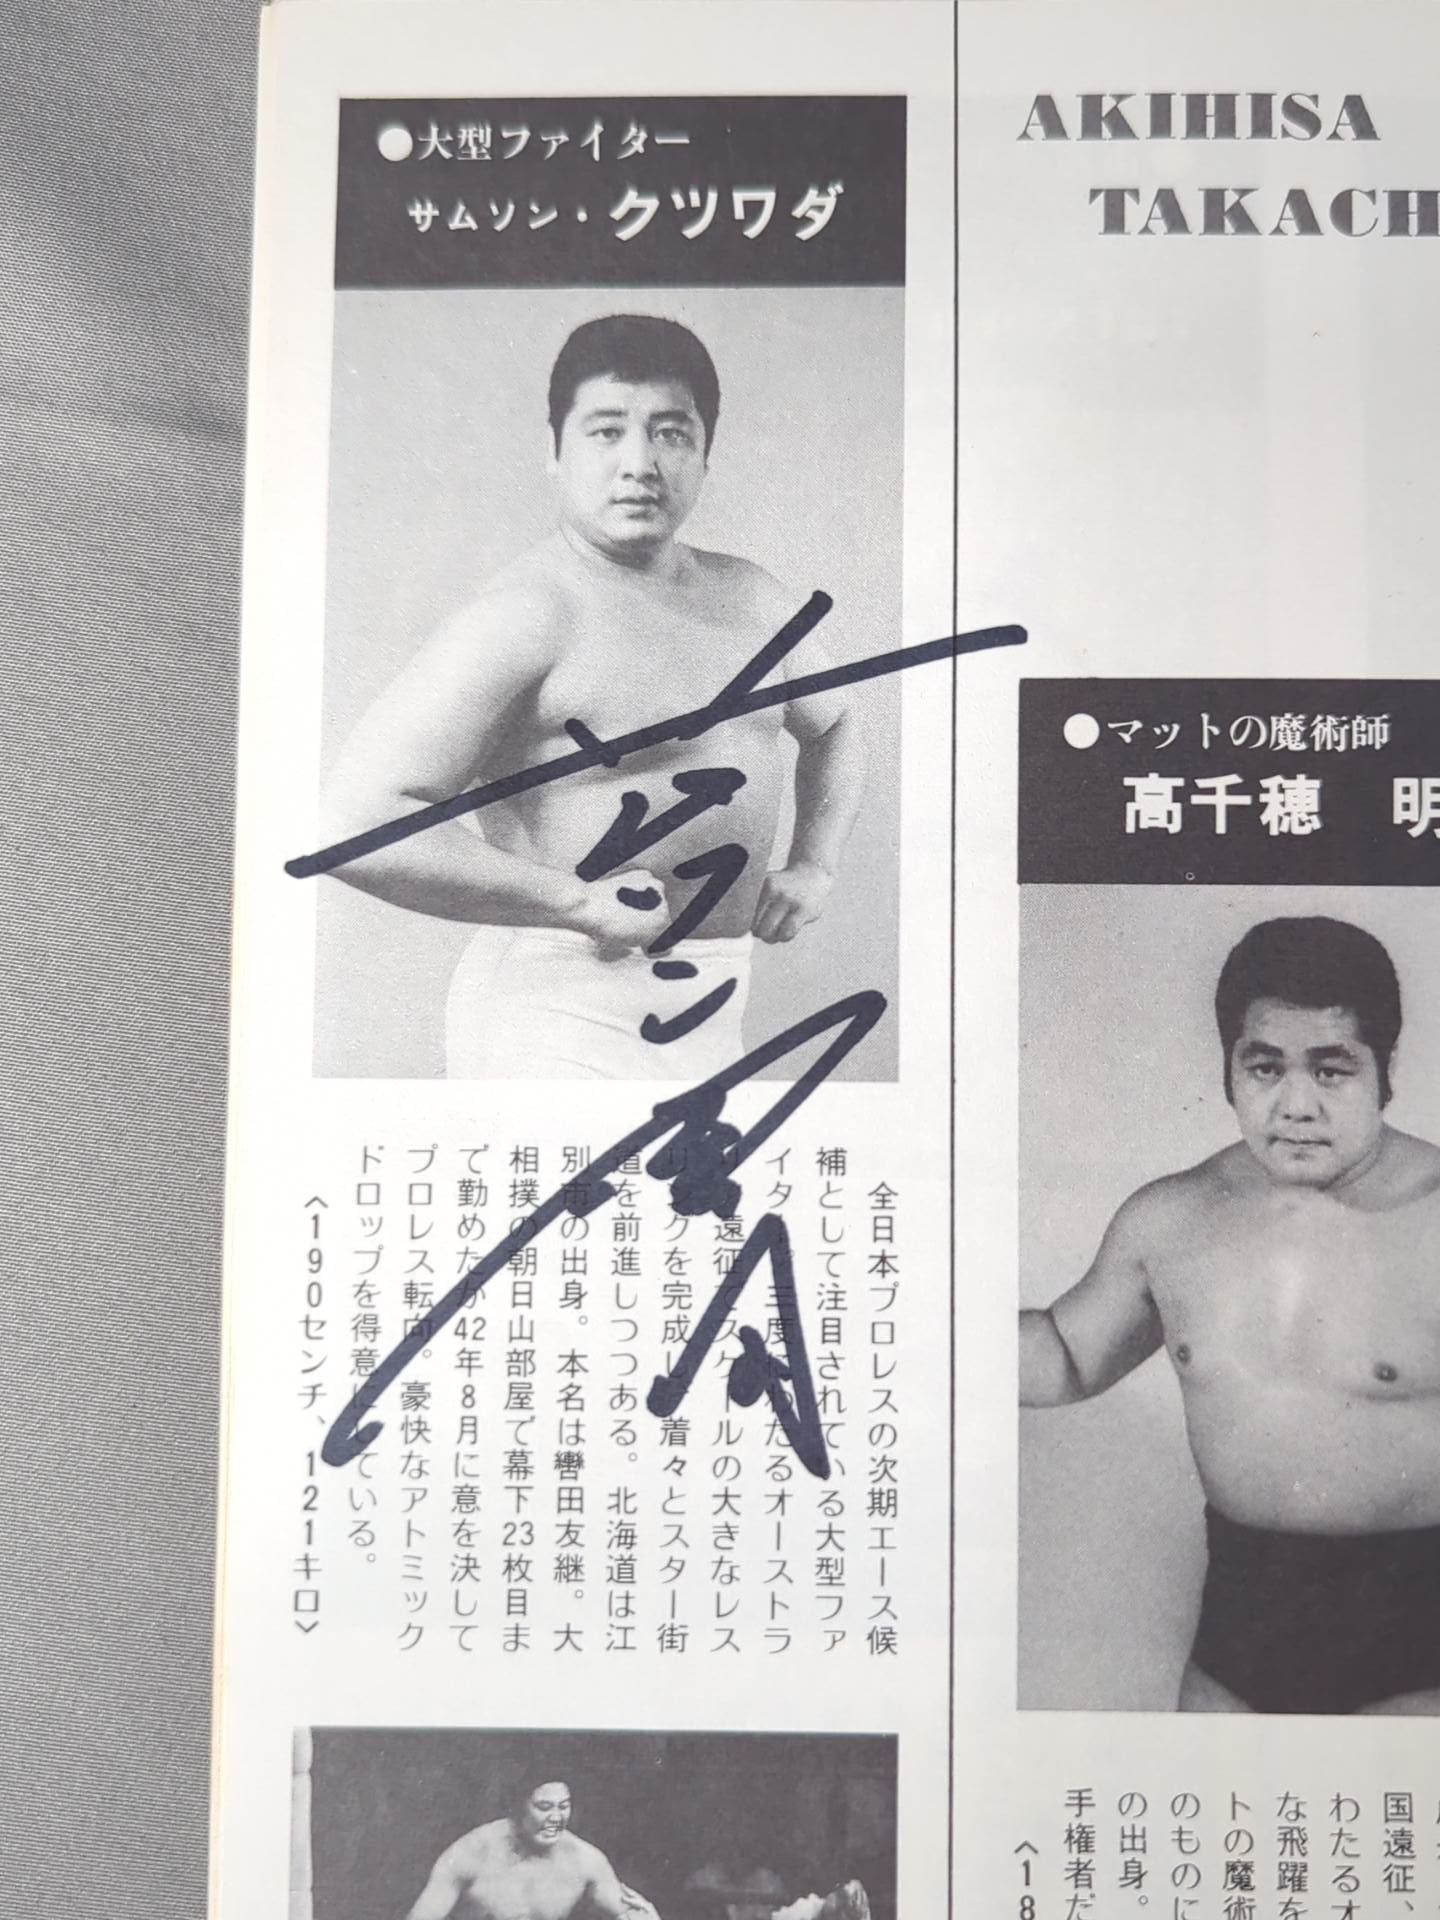 ●大型ファイター
サムソン・クツワダ
全日本プロレスの次期エース候
補として注目されている大型ファ
イター。三度にわたるオーストラ
リア遠征でスケールの大きなレス
リングを完成し、着々とスター街
道を前進しつつある。北海道は江
別市の出身。本名は轡田友継。大
相撲の朝日山部屋で幕下23枚目ま
で勤めたが42年8月に意を決して
プロレス転向。豪快なアトミック
ドロップを得意にしている。
〈190センチ、121キロ〉
AKIHISA
TAKACH
●マットの魔術師
高千穂 明
国遠征、
わたるオ
な飛躍を
トの魔術
のものに
の出身。
手権者だ
〈18